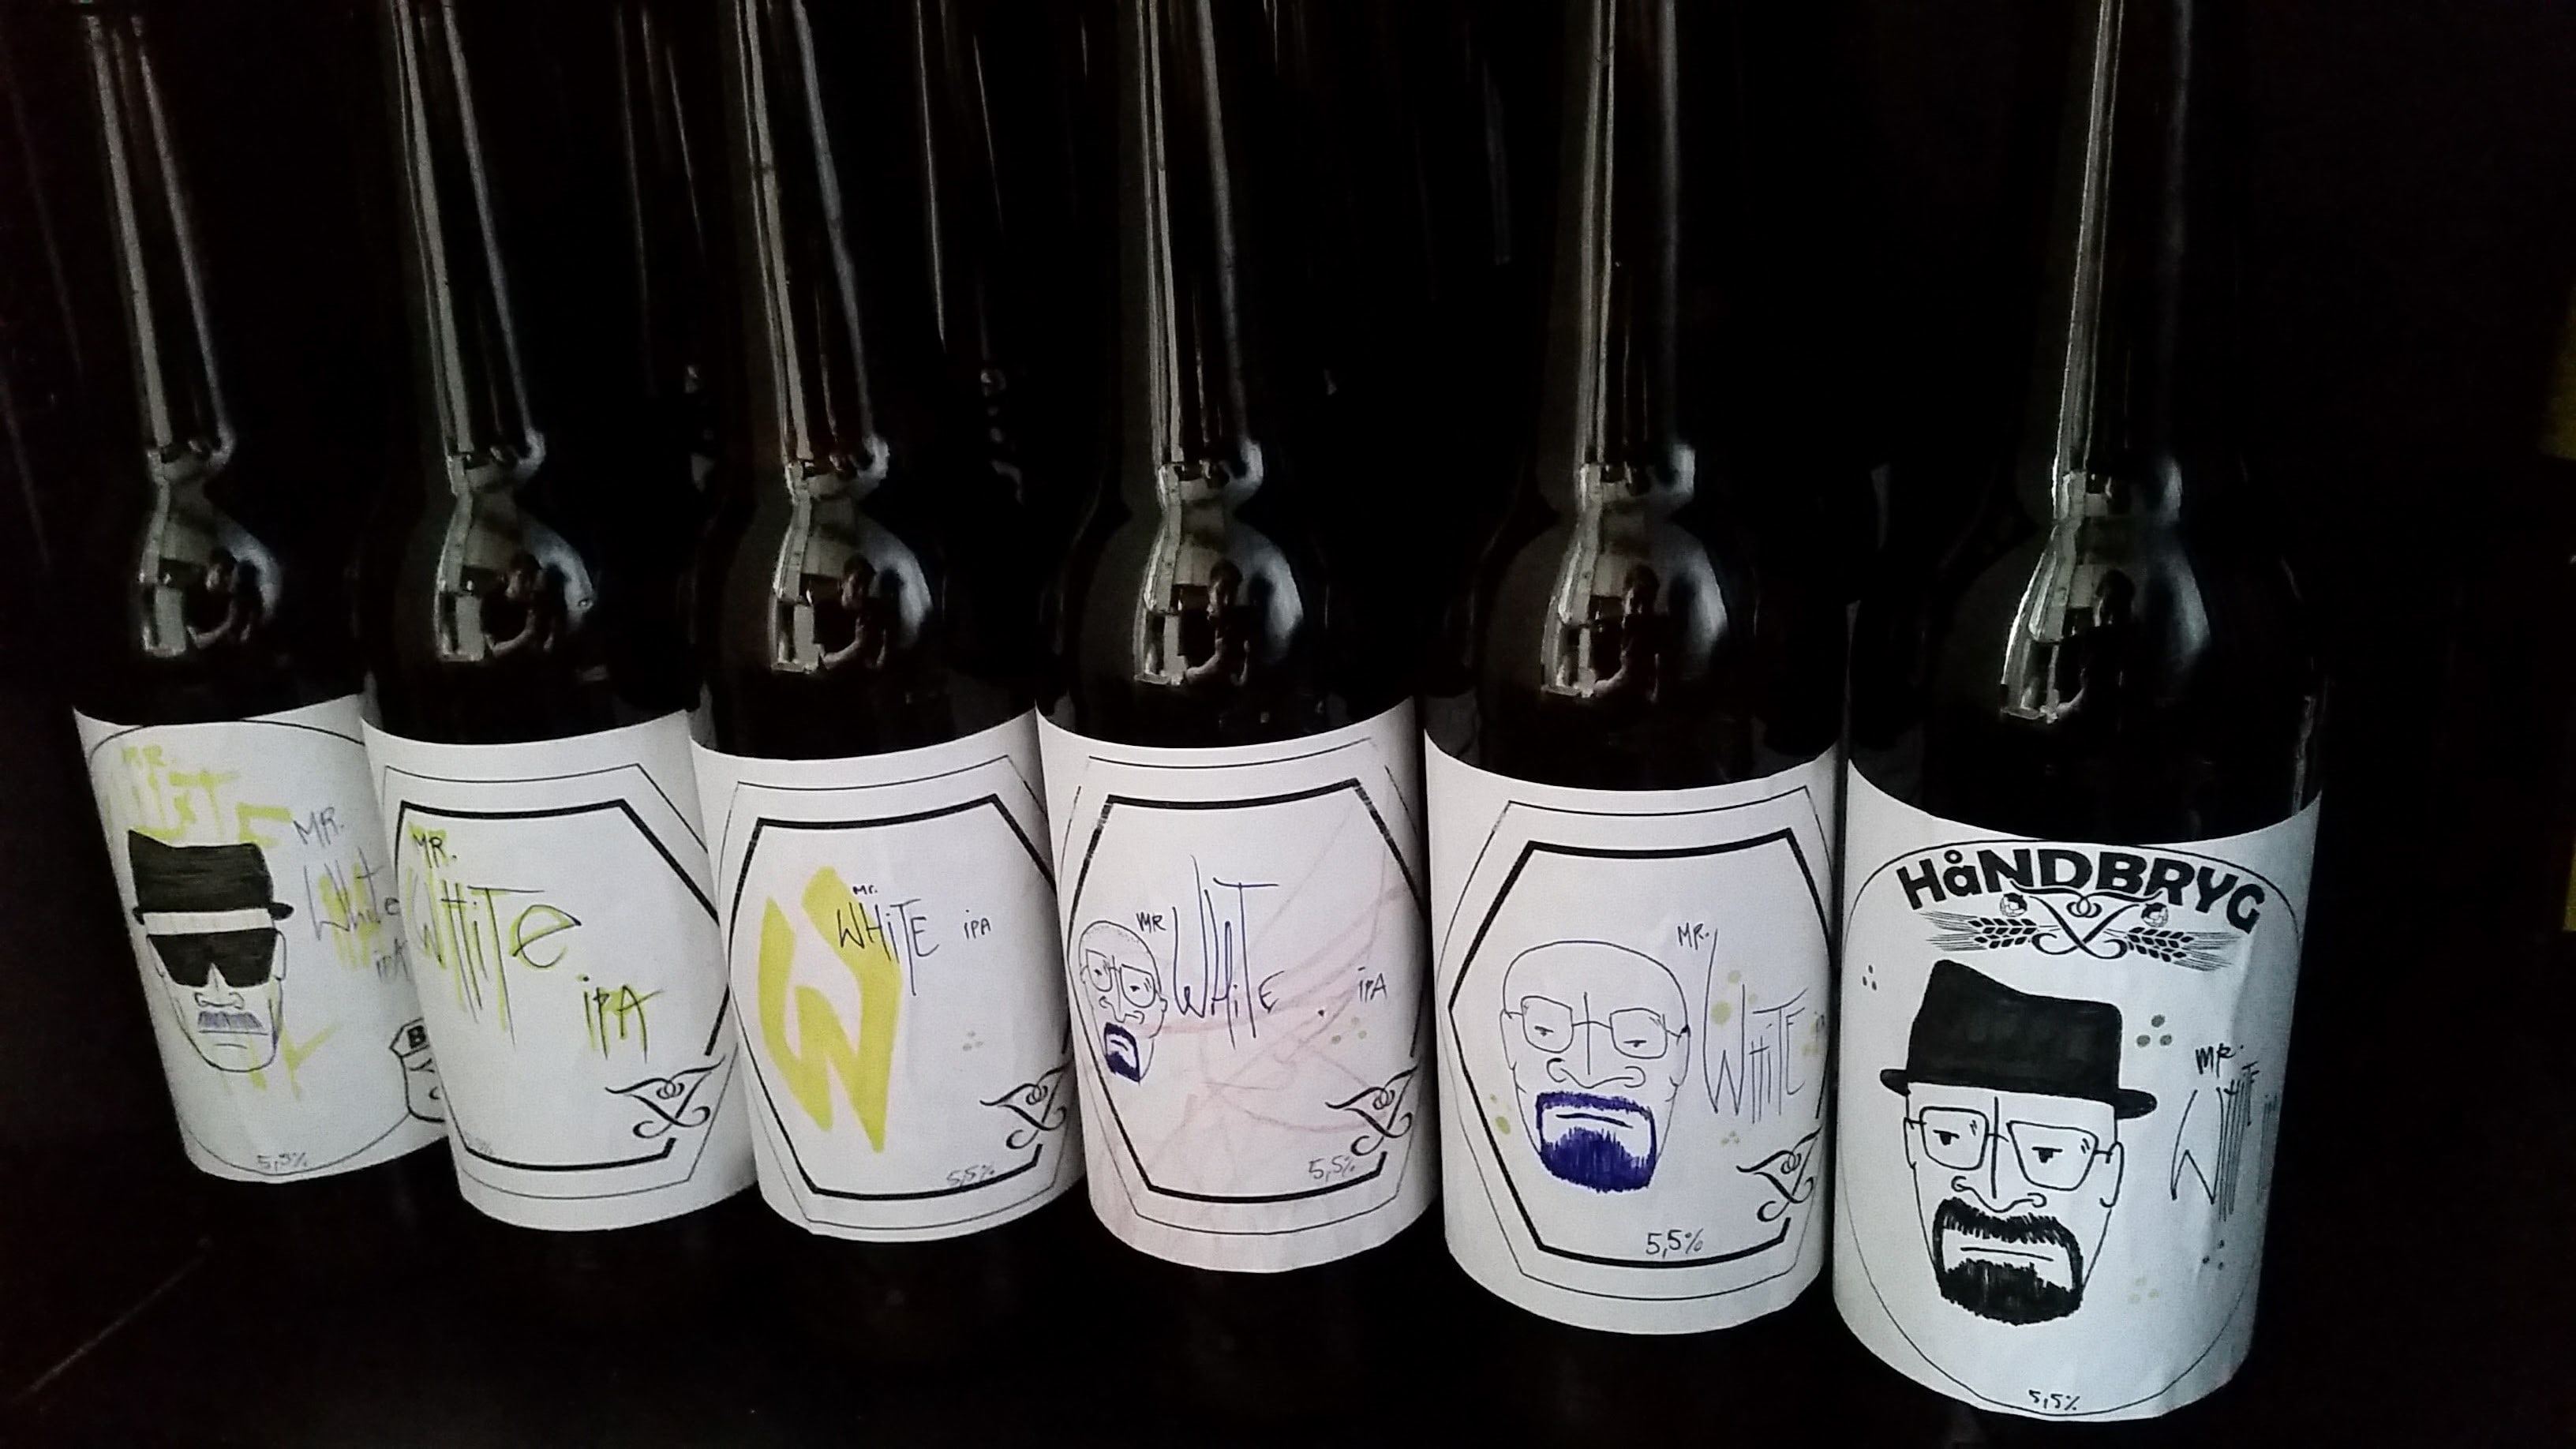 MR.
MR.
White
IPA
5,5%
MR.
WHiTe
iPA
Mr.
WHiTE iPA
W
5,5%
MR
WHiTE
iPA
5,5%
MR.
WHiTE
5,5%
HåNDBRYG
MR.
WHiTE
5,5%